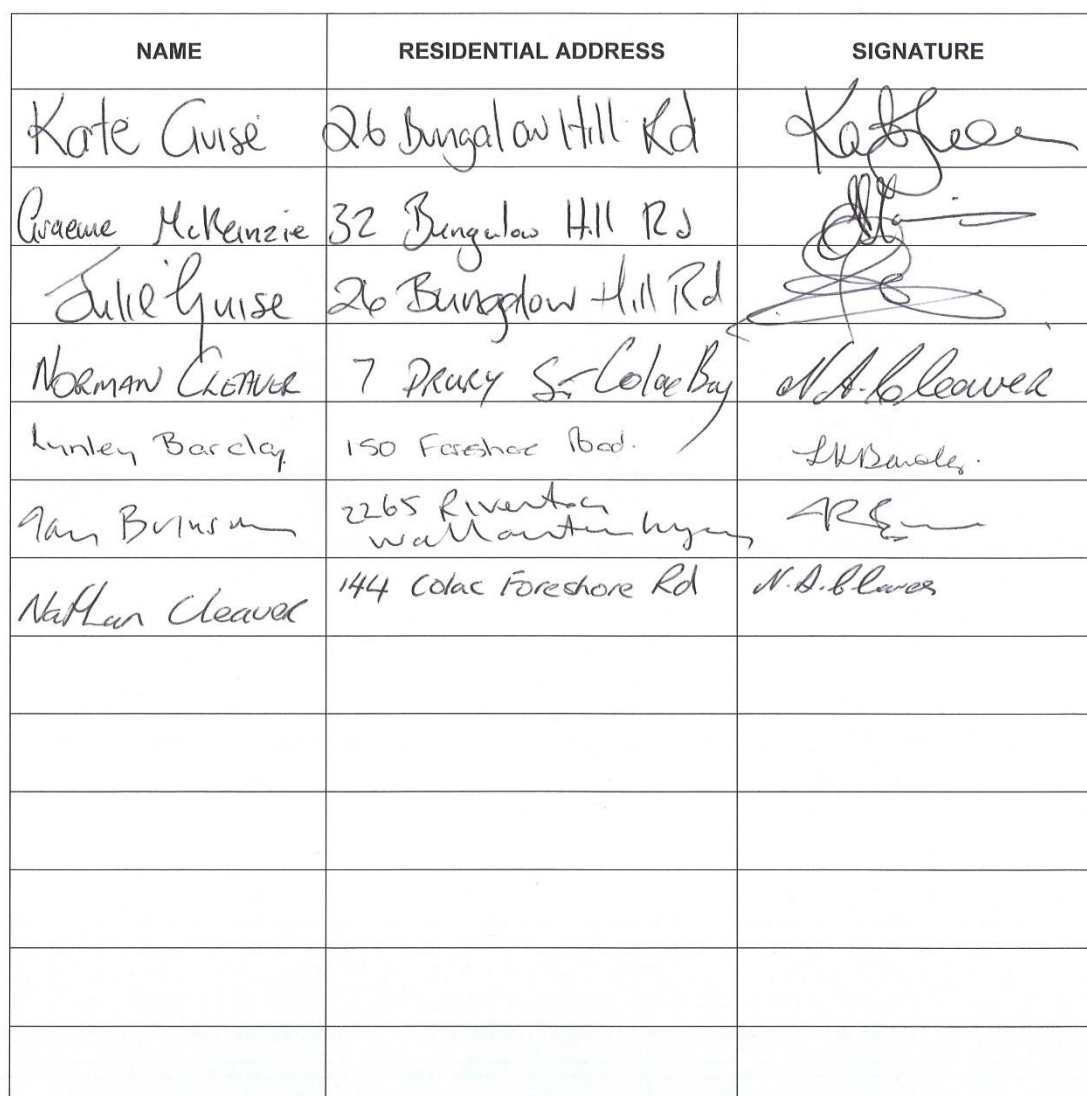 NAME RESIDENTIAL ADDRESS SIGNATURE
Kate Guise 26 Bungalow Hill Rd
Graeme McKenzie 32 Bungalow Hill Rd
Julie Guise 26 Bungalow Hill Rd
NORMAN CLEAVER 7 DRURY St Colac Bay N.A. Cleaver
Lynley Barclay 150 Foreshore Road.
2265 Riverton
Nathan Cleaver 144 Colac Foreshore Rd N.A. Cleaver